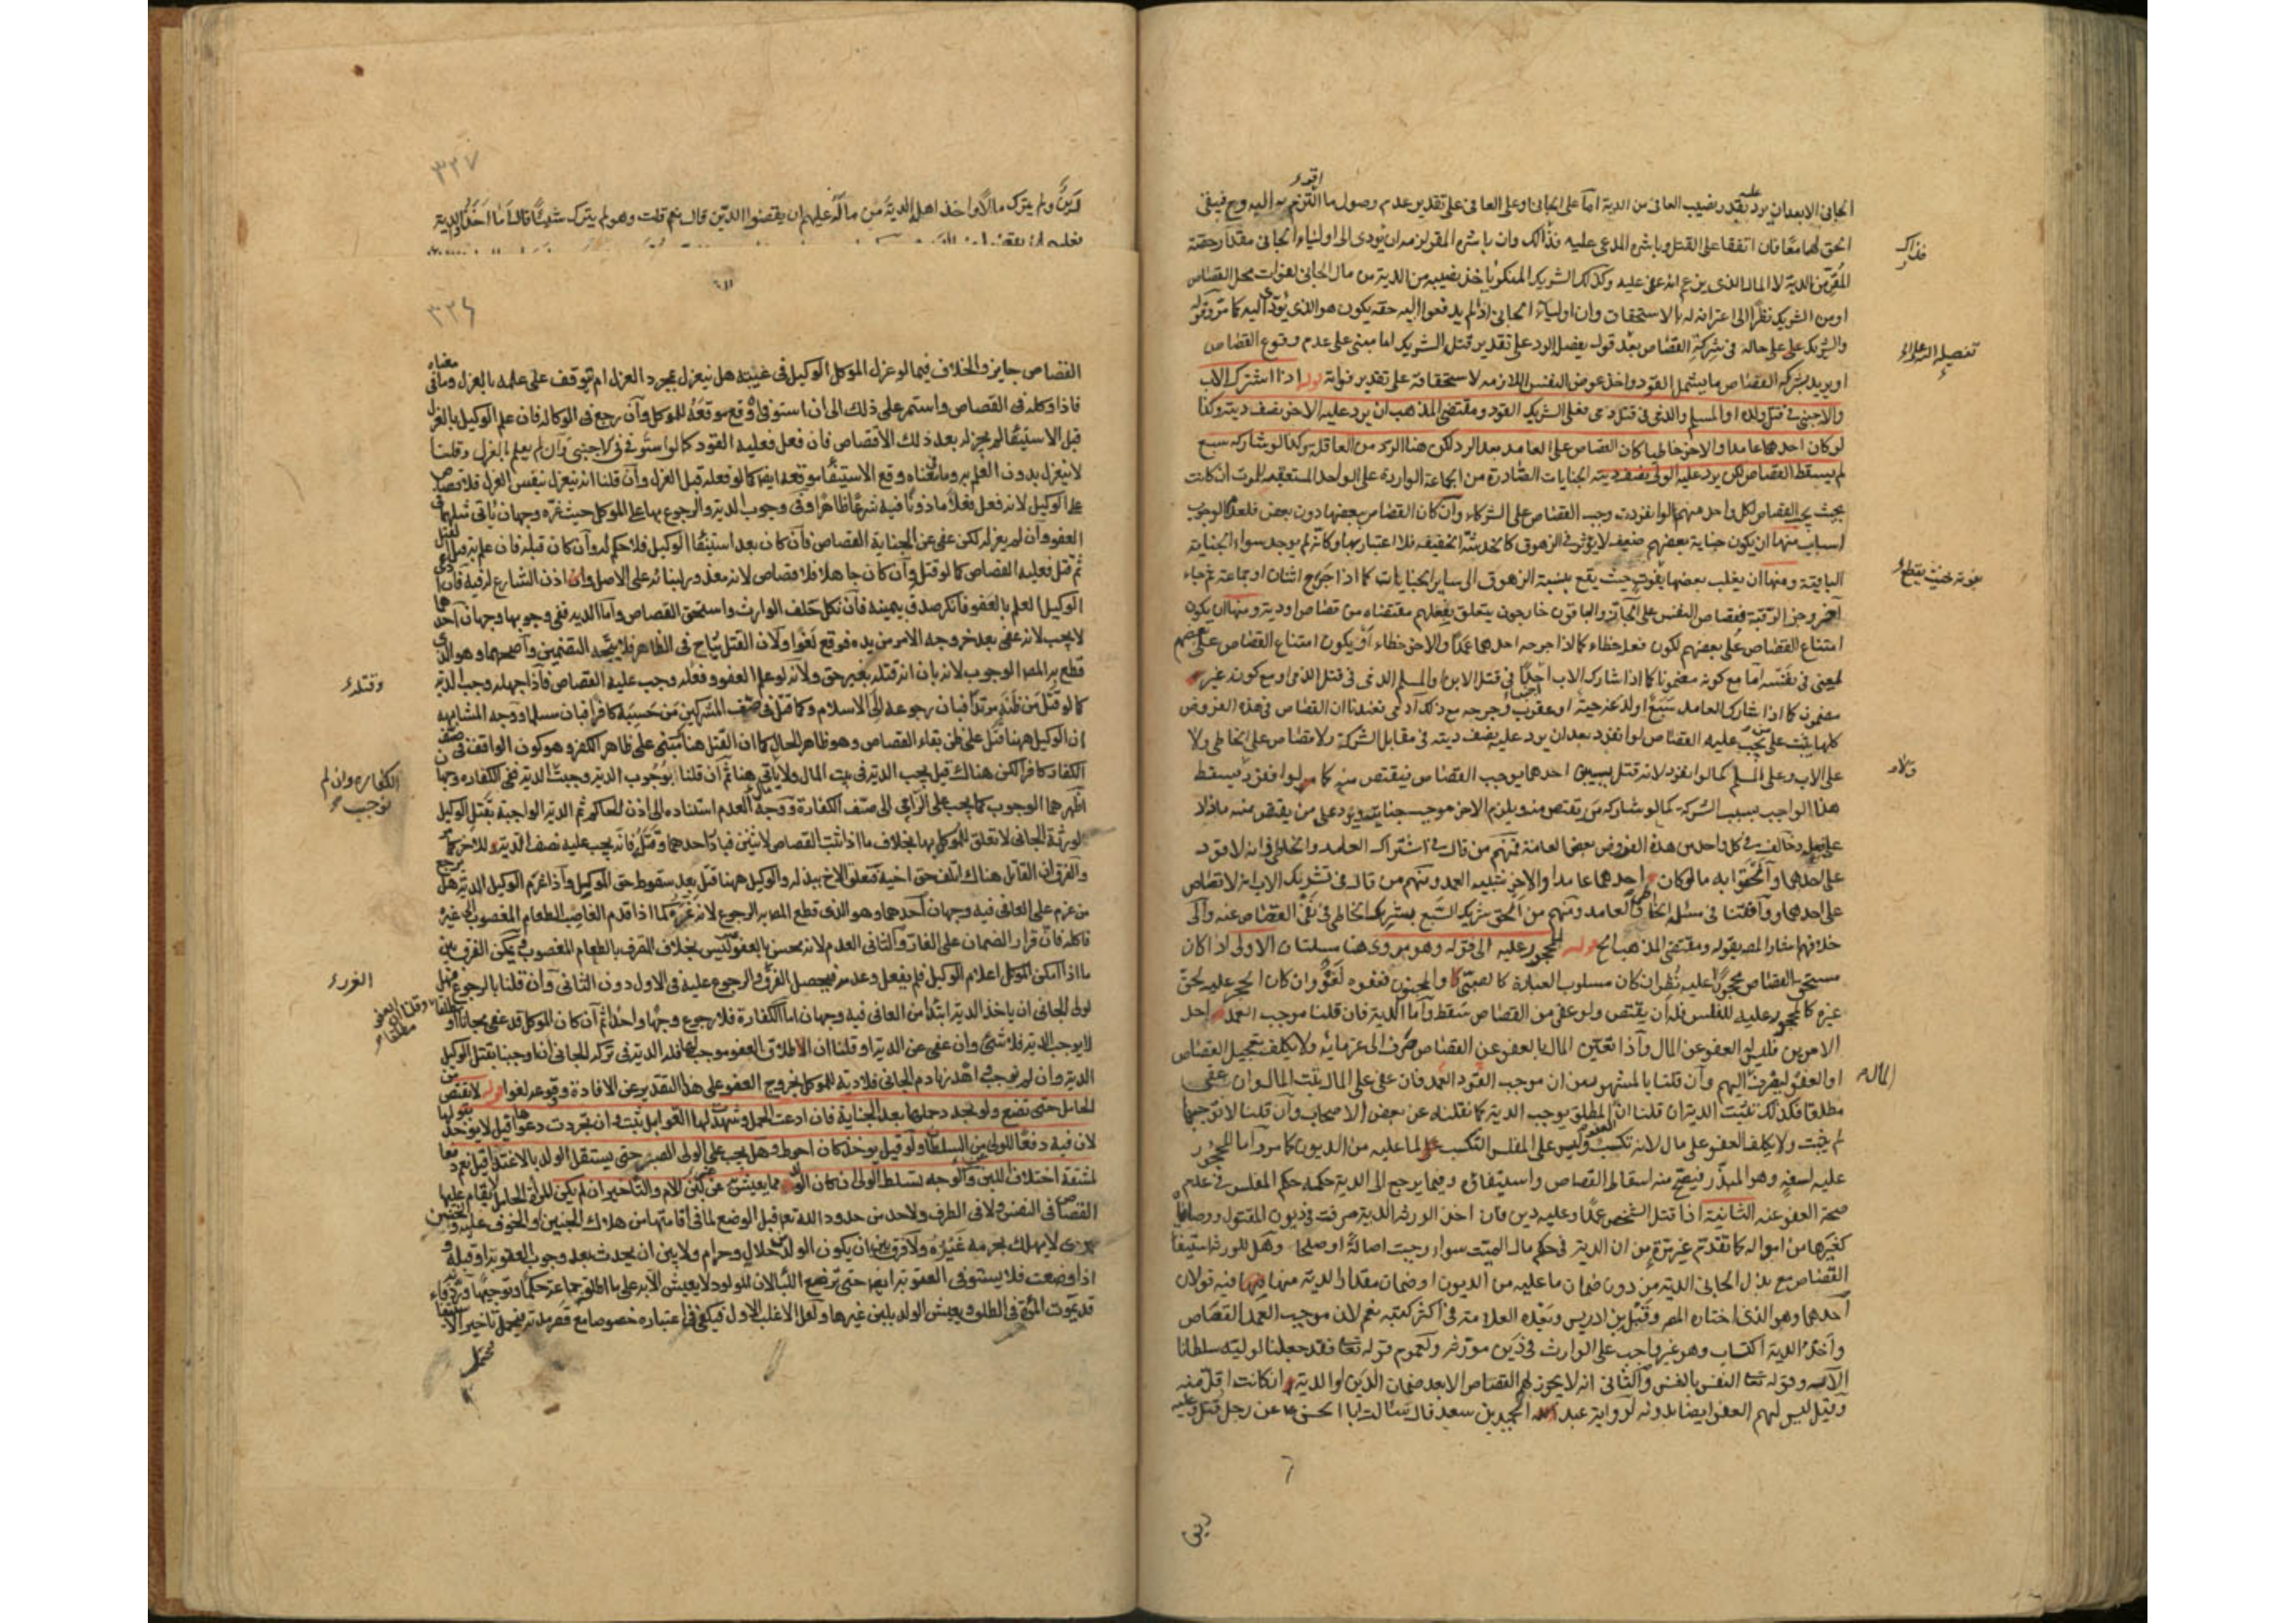 الجانى الا بعد ان يرد عليه بقدر نصيب العافى من الدية اما على الجانى او على العافى على تقدير عدم وصول ما التزم به اليه
الحق لهما معا فان اتفقا على القتل وباشره المدعى عليه فذاك وان باشره المقر لزمه ان يؤدى الى اولياء الجانى مقدار حصة
المقر من الدية لا المال الذى يزعم انه عفى عليه وكذلك الشريك المنكر ياخذ نصيبه من الدية من مال الجانى لفوات محل القصاص
او من الشريك نظرا الى اعترافه له بالاستحقاق وان اولياء الجانى اذا لم يدفعوا اليه حقه يكون هو الذى يؤدى اليه كما مر وقوله
والشريك على حاله فى شركة القصاص بعد قوله بفضل الرد على تقدير قتل الشريك اما مبنى على عدم وقوع القصاص
او يريد بشركة القصاص ما يشمل القود واخذ عوض النفس اللازمه لاستحقاقه على تقدير فواته قوله اذا اشترك الاب
والاجنبى فى قتل ولده او المسلم والذمى فى قتل ذمى فعلى الشريك القود ومقتضى المذهب ان يرد عليه الاخر نصف ديته وكذا
لو كان احدهما عامدا والاخر خاطيا كان القصاص على العامد بعد الرد لكن هنا الرد من العاقلة وكذا لو شاركه سبع
لم يسقط القصاص لكن يرد عليه الولى نصف ديته الجنايات الصادرة من الجماعة الواردة على الواحد المستعقبة للموت ان كانت
بحيث يجب القصاص لكل واحد منهم لو انفردت وجب القصاص على الشركاء وان كان القصاص ببعضها دون بعض فلعدم الوجوب
اسباب منها ان يكون جناية بعضهم ضعيفه لا يؤثر فى الزهوق كالخدشة الخفيفه فلا اعتبار بها وكانه لم يوجد سواء الجناية
الباقية ومنها ان يغلب بعضها بقوته بحيث يقطع نسبة الزهوق الى ساير الجنايات كما اذا جرح اثنان او جماعة ثم جاء
آخر وجز الرقبة فقصاص النفس على الجاز والباقون خارجون يتعلق بفعلهم مقتضاه من قصاص او دية ومنها ان يكون
امتناع القصاص على بعضهم لكون فعله خطاء كما اذا جرحه احدهما عمدا والاخر خطاء او يكون امتناع القصاص على بعضهم
لمعنى فى نفسه اما مع كونه مضمونا كما اذا شارك الاب اجنبيا فى قتل الابن او المسلم الذمى فى قتل الذمى او مع كونه غير
مضمون كما اذا شارك العامد سبع او لدغ حية او عقرب وجرحه مع ذلك آدمى فعندنا ان القصاص فى هذه الفروض
كلها يثبت على من يجب عليه القصاص لو انفرد بعد ان يرد عليه نصف ديته فى مقابل الشركة ولا قصاص على الخاطى ولا
على الاب وعلى المسلم كما لو انفرد لانه قتل بسببين احدهما يوجب القصاص فيقتص منه كما لو انفرد فيسقط
هذا الواجب بسبب الشركة كما لو شاركه من يقتص منه ويلزم الاخر موجب جنايته ويرد على من يقتص منه ما زاد
خالف فى كل واحد من هذه الفروض بعض العامة فمنهم من قال فى اشتراك العامد والخاطى انه لا قود
على احدهما والحقوا به ما لو كان احدهما عامدا والاخر شبيه العمد ومنهم من قال فى شريك الاب انه لا قصاص
على احدهما ووافقنا فى مسئلة الخاطى والعامد ومنهم من الحق شريك السبع بشريك الخاطى فى نفى القصاص عنه والى
خلافهم اشار المصـ بقوله ومقتضى المذهب الخ قوله المحجور عليه الى قوله وهو مروى هنا مسئلتان الاولى اذا كان
مستحق القصاص محجورا عليه نظر ان كان مسلوب العبارة كالصبى والمجنون فعفوه لغو وان كان الحجر عليه لحق
غيره كالمحجور عليه للفلس فله ان يقتص ولو عفى من القصاص سقط واما الدية فان قلنا موجب العمد احد
الامرين فليس له العفو عن المال واذا تعين المال بالعفو عن القصاص صرف الى غرمائه ولا يكلف تعجيل القصاص
او العفو ليصرف اليهم وان قلنا بالمشهور من ان موجب القود العمد فان عفى على المال يثبت المال وان عفى
مطلقا فكذلك تثبت الدية ان قلنا ان المطلق يوجب الدية كما نقلناه عن بعض الاصحاب وان قلنا لا توجبها
لم يثبت ولا يكلف العفو على مال لانه تكسب وليس على المفلس التكسب لما عليه من الديون كما مر واما المحجور
عليه لسفه وهو المبذر فيصح منه اسقاط القصاص واستيفائه وفيما يرجع الى الدية حكمه حكم المفلس فى عدم
صحة العفو عنه الثانية اذا قتل الشخص عمدا وعليه دين فان اخذ الورثة الدية صرفت فى ديون المقتول ووصاياه
كغيرها من امواله كما تقدم غير مرة من ان الدية فى حكم مال الميت سواء وجبت اصالة او صلحا وهل للورثة استيفاء
القصاص مع بذل الجانى الدية من دون ضمان ما عليه من الديون او ضمان مقدار الدية منها فيه قولان
احدهما وهو الذى اختاره المصـ وقبله ابن ادريس وبعده العلامة فى اكثر كتبه نعم لان موجب العمد القصاص
واخذ الدية اكتساب وهو غير واجب على الوارث فى دين مورثه ولعموم قوله تعالى فقد جعلنا لوليه سلطانا
الآية وقوله تعالى النفس بالنفس والثانى انه لا يجوز لهم القصاص الا بعد ضمان الدين او الدية ان كانت اقل منه
وقيل ليس لهم العفو ايضا بدونه لرواية عبد الحميد بن سعيد قال سالت ابا الحسن عن رجل قتل وعليه
فذاك
المال
دين
٣٢٧
دين ولم يترك مالا واخذ اهله الدية من ماله عليهم ان يقضوا الدين قال نعم قلت وهو لم يترك شيئا قال اما اخذوا الدية
فعليهم ان يقضوا
٣٢٤
القصاص جايز والخلاف فيما لو عزل الموكل الوكيل فى غيبته هل ينعزل بمجرد العزل ام يتوقف على علمه بالعزل وما فى معناه
فاذا وكله فى القصاص واستمر على ذلك الى ان استوفى اوقع موقعه للموكل وان رجع فى الوكاله فان علم الوكيل بالعزل
قبل الاستيفاء لم يجز له بعد ذلك الاقتصاص فان فعل فعليه القود كما لو استوفى الاجنبى وان لم يعلم بالعزل وقلنا
لا ينعزل بدون العلم به وما فى معناه وقع الاستيفاء موقعه ايضا كما لو فعله قبل العزل وان قلنا انه ينعزل بنفس العزل فلا قصاص
على الوكيل لانه فعل فعلا ماذونا فيه شرعا ظاهرا وفى وجوب الدية والرجوع بها على الموكل حيث غره وجهان ياتى مثلهما فى
العفو وان لم يعزله لكن عفى عن الجناية القصاص فان كان بعد استيفاء الوكيل فلا حكم له وان كان قبله فان علم به قبل القتل
ثم قتل فعليه القصاص كما لو قتل وان كان جاهلا فلا قصاص لانه معذور لبنائه على الاصل واذن الشارع له فيه فان ادعى
الوكيل العلم بالعفو فانكر صدق بيمينه فان نكل حلف الوارث واستحق القصاص واما الدية ففى وجوبها وجهان احدهما
لا يجب لانه عفى بعد خروجه الامر من يده فوقع لغوا ولان القتل مباح فى الظاهر فلا يتجه التضمين واصحهما وهو الذى
قطع به المصـ الوجوب لانه بان انه قتله بغير حق ولانه لو علم العفو وقتله وجب عليه القصاص فاذا جهله وجب الدية
كما لو قتل من ظنه مرتدا فبان رجوعه الى الاسلام وكما قتل فى صف المشركين من حسبه كافرا فبان مسلما ووجه المشابهة
ان الوكيل ههنا قتل على ظن بقاء القصاص وهو ظاهر الحال كما ان القتل هنا مبنى على ظاهر الكفر وهو كون الواقف فى صف
الكفار كافرا لكن هناك قيل يجب الدية فى بيت المال ولا ياتى هنا ثم ان قلنا بوجوب الدية وجبت الدية ففى الكفاره وجها
اظهرهما الوجوب كما يجب على الرامى الى صف الكفارة ووجه العدم استناده الى اذن الحاكم ثم الدية الواجبة بقتل الوكيل
لورثة الجانى لا تعلق للموكل بها بخلاف ما اذا ثبت القصاص لاثنين فبادر احدهما وقتل فانه يجب عليه نصف الدية للاخر كما مر
والفرق ان القاتل هناك اتلف حق اخيه فتعلق الاخ ببذله والوكيل ههنا قتل بعد سقوط حق الموكل واذا غرم الوكيل الدية هل يرجع
من غرم على العافى فيه وجهان احدهما وهو الذى قطع المصـ به الرجوع لانه غره كما اذا قدم الغاصب الطعام المغصوب الى غيره
فاكله فان قرار الضمان على الغار والثانى العدم لانه محسن بالعفو وليس بخلاف الغرور بالطعام المغصوب ويمكن الفرق بين
ما اذا امكن الموكل اعلام الوكيل فلم يفعل وعدمه فيحصل الفرق والرجوع عليه فى الاول دون الثانى وان قلنا بالرجوع فهل
لولى الجانى ان ياخذ الدية ابتداء من العافى فيه وجهان اما الكفارة فلا رجوع وجها واحدا ثم ان كان الموكل قد عفى مجانا او
لا يوجب الدية فلا شئ وان عفى عن الدية او قلنا ان الاطلاق العفو موجب لها فله الدية فى تركة الجانى ان اوجبنا بقتل الوكيل
الدية وان لم نوجب اهدرنا دم الجانى فلا دية للموكل لخروج العفو على هذا التقدير عن الافادة ووقوعه لغوا قوله لا يقتص من
الحامل حتى تضع ولو تجدد حملها بعد الجناية فان ادعت الحمل وشهدت لها القوابل ثبت وان تجردت دعواها قيل لا يؤخذ بقولها
لان فيه دفعا للولى من السلطان ولو قيل يؤخذ كان احوط وهل يجب على الولى الصبر حتى يستقل الولد بالاغتذاء قيل نعم دفعا
لمشقة اختلاف اللبن والوجه تسلط الولى ان كان للولد ما يعيش به عن لبن الام والتاخير ان لم يكن للمراة الحامل لا يقام عليها
القصاص فى النفس ولا فى الطرف ولا حد من حدود الله تعالى قبل الوضع لما فى اقامتها من هلاك الجنين او الخوف عليه والجنين
برئ لا يهلك بجرمه غيره ولا فرق بين ان يكون الولد من حلال وحرام ولا بين ان يحدث بعد وجوب العقوبة او قبله و
اذا وضعت فلا يستوفى العقوبة ايضا حتى ترضع اللبا لان المولود لا يعيش الا به على ما اطلقه جماعة حكما وتوجيها
قد تموت المراة فى الطلق ويعيش الولد بلبن غيرها ولعل الاغلب الاول فيكفى فى اعتباره خصوصا مع قصر مدته فيحمل تاخير الاستيفاء
وقتله
الكفاره وان لم
نوجب
الغرور
محتمل